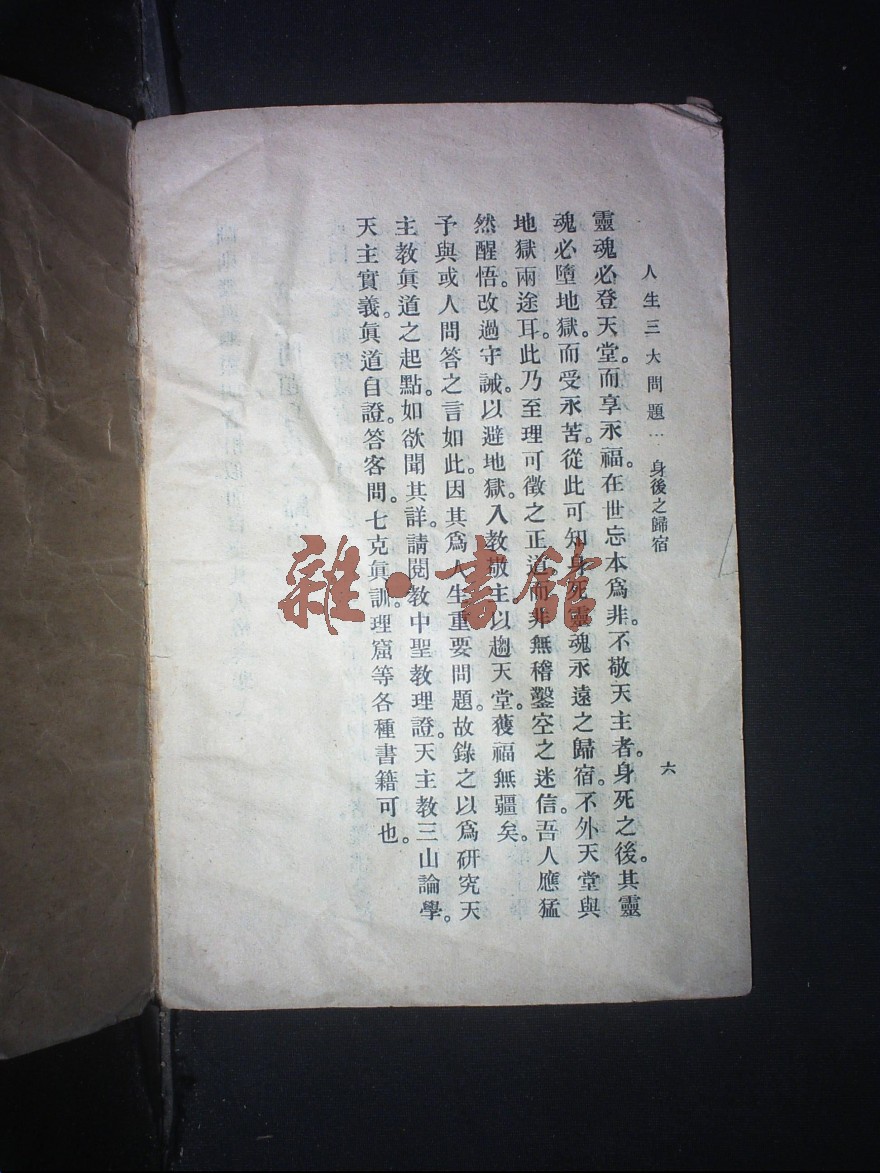 人生三大問題⋯身後之歸宿
六
靈魂必登天堂。而享永福。在世忘本爲非。不敬天主者。身死之後。其靈
魂必墮地獄。而受永苦。從此可知身死靈魂永遠之歸宿。不外天堂與
地獄兩途耳。此乃至理可徵之正道而非無稽鑿空之迷信。吾人應猛
然醒悟。改過守誡。以避地獄。入教敬主以趨天堂。獲福無疆矣。
予與或人問答之言如此。因其爲人生重要問題。故錄之以爲研究天
主教眞道之起點。如欲聞其詳。請閱教中聖教理證。天主教三山論學。
天主實義。眞道自證。答客問。七克眞訓。理窟等各種書籍可也。
雜·書館